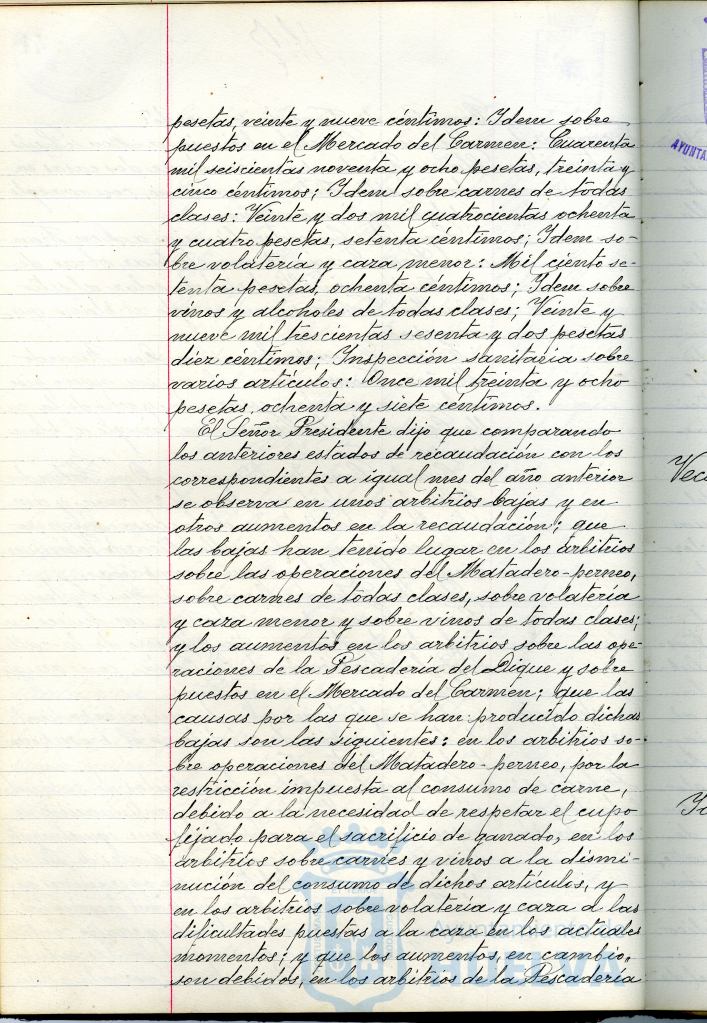 pesetas, veinte y nueve céntimos: Idem sobre
puestos en el Mercado del Carmen: Cuarenta
mil seiscientas noventa y ocho pesetas, treinta y
cinco céntimos; Idem sobre carnes de todas
clases: Veinte y dos mil cuatrocientas ochenta
y cuatro pesetas, setenta céntimos; Idem so-
bre volatería y caza menor: Mil ciento se-
tenta pesetas, ochenta céntimos; Idem sobre
vinos y alcoholes de todas clases; Veinte y
nueve mil trescientas sesenta y dos pesetas
diez céntimos; Inspección sanitaria sobre
varios artículos: Once mil treinta y ocho
pesetas, ochenta y siete céntimos.
El Señor Presidente dijo que comparando
los anteriores estados de recaudación con los
correspondientes a igual mes del año anterior
se observa en unos arbitrios bajas y en
otros aumentos en la recaudación; que
las bajas han tenido lugar en los arbitrios
sobre las operaciones del Matadero-perneo,
sobre carnes de todas clases, sobre volatería
y caza menor y sobre vinos de todas clases;
y los aumentos en los arbitrios sobre las ope-
raciones de la Pescadería del Dique y sobre
puestos en el Mercado del Carmen; que las
causas por las que se han producido dichas
bajas son las siguientes: en los arbitrios so-
bre operaciones del Matadero-perneo, por la
restricción impuesta al consumo de carne,
debido a la necesidad de respetar el cupo
fijado para el sacrificio de ganado, en los
arbitrios sobre carnes y vinos a la dismi-
nución del consumo de dichos artículos, y
en los arbitrios sobre volatería y caza a las
dificultades puestas a la caza en los actuales
momentos; y que los aumentos, en cambio,
son debidos, en los arbitrios de la Pescadería
AYUNTA
Vec
HUELVA